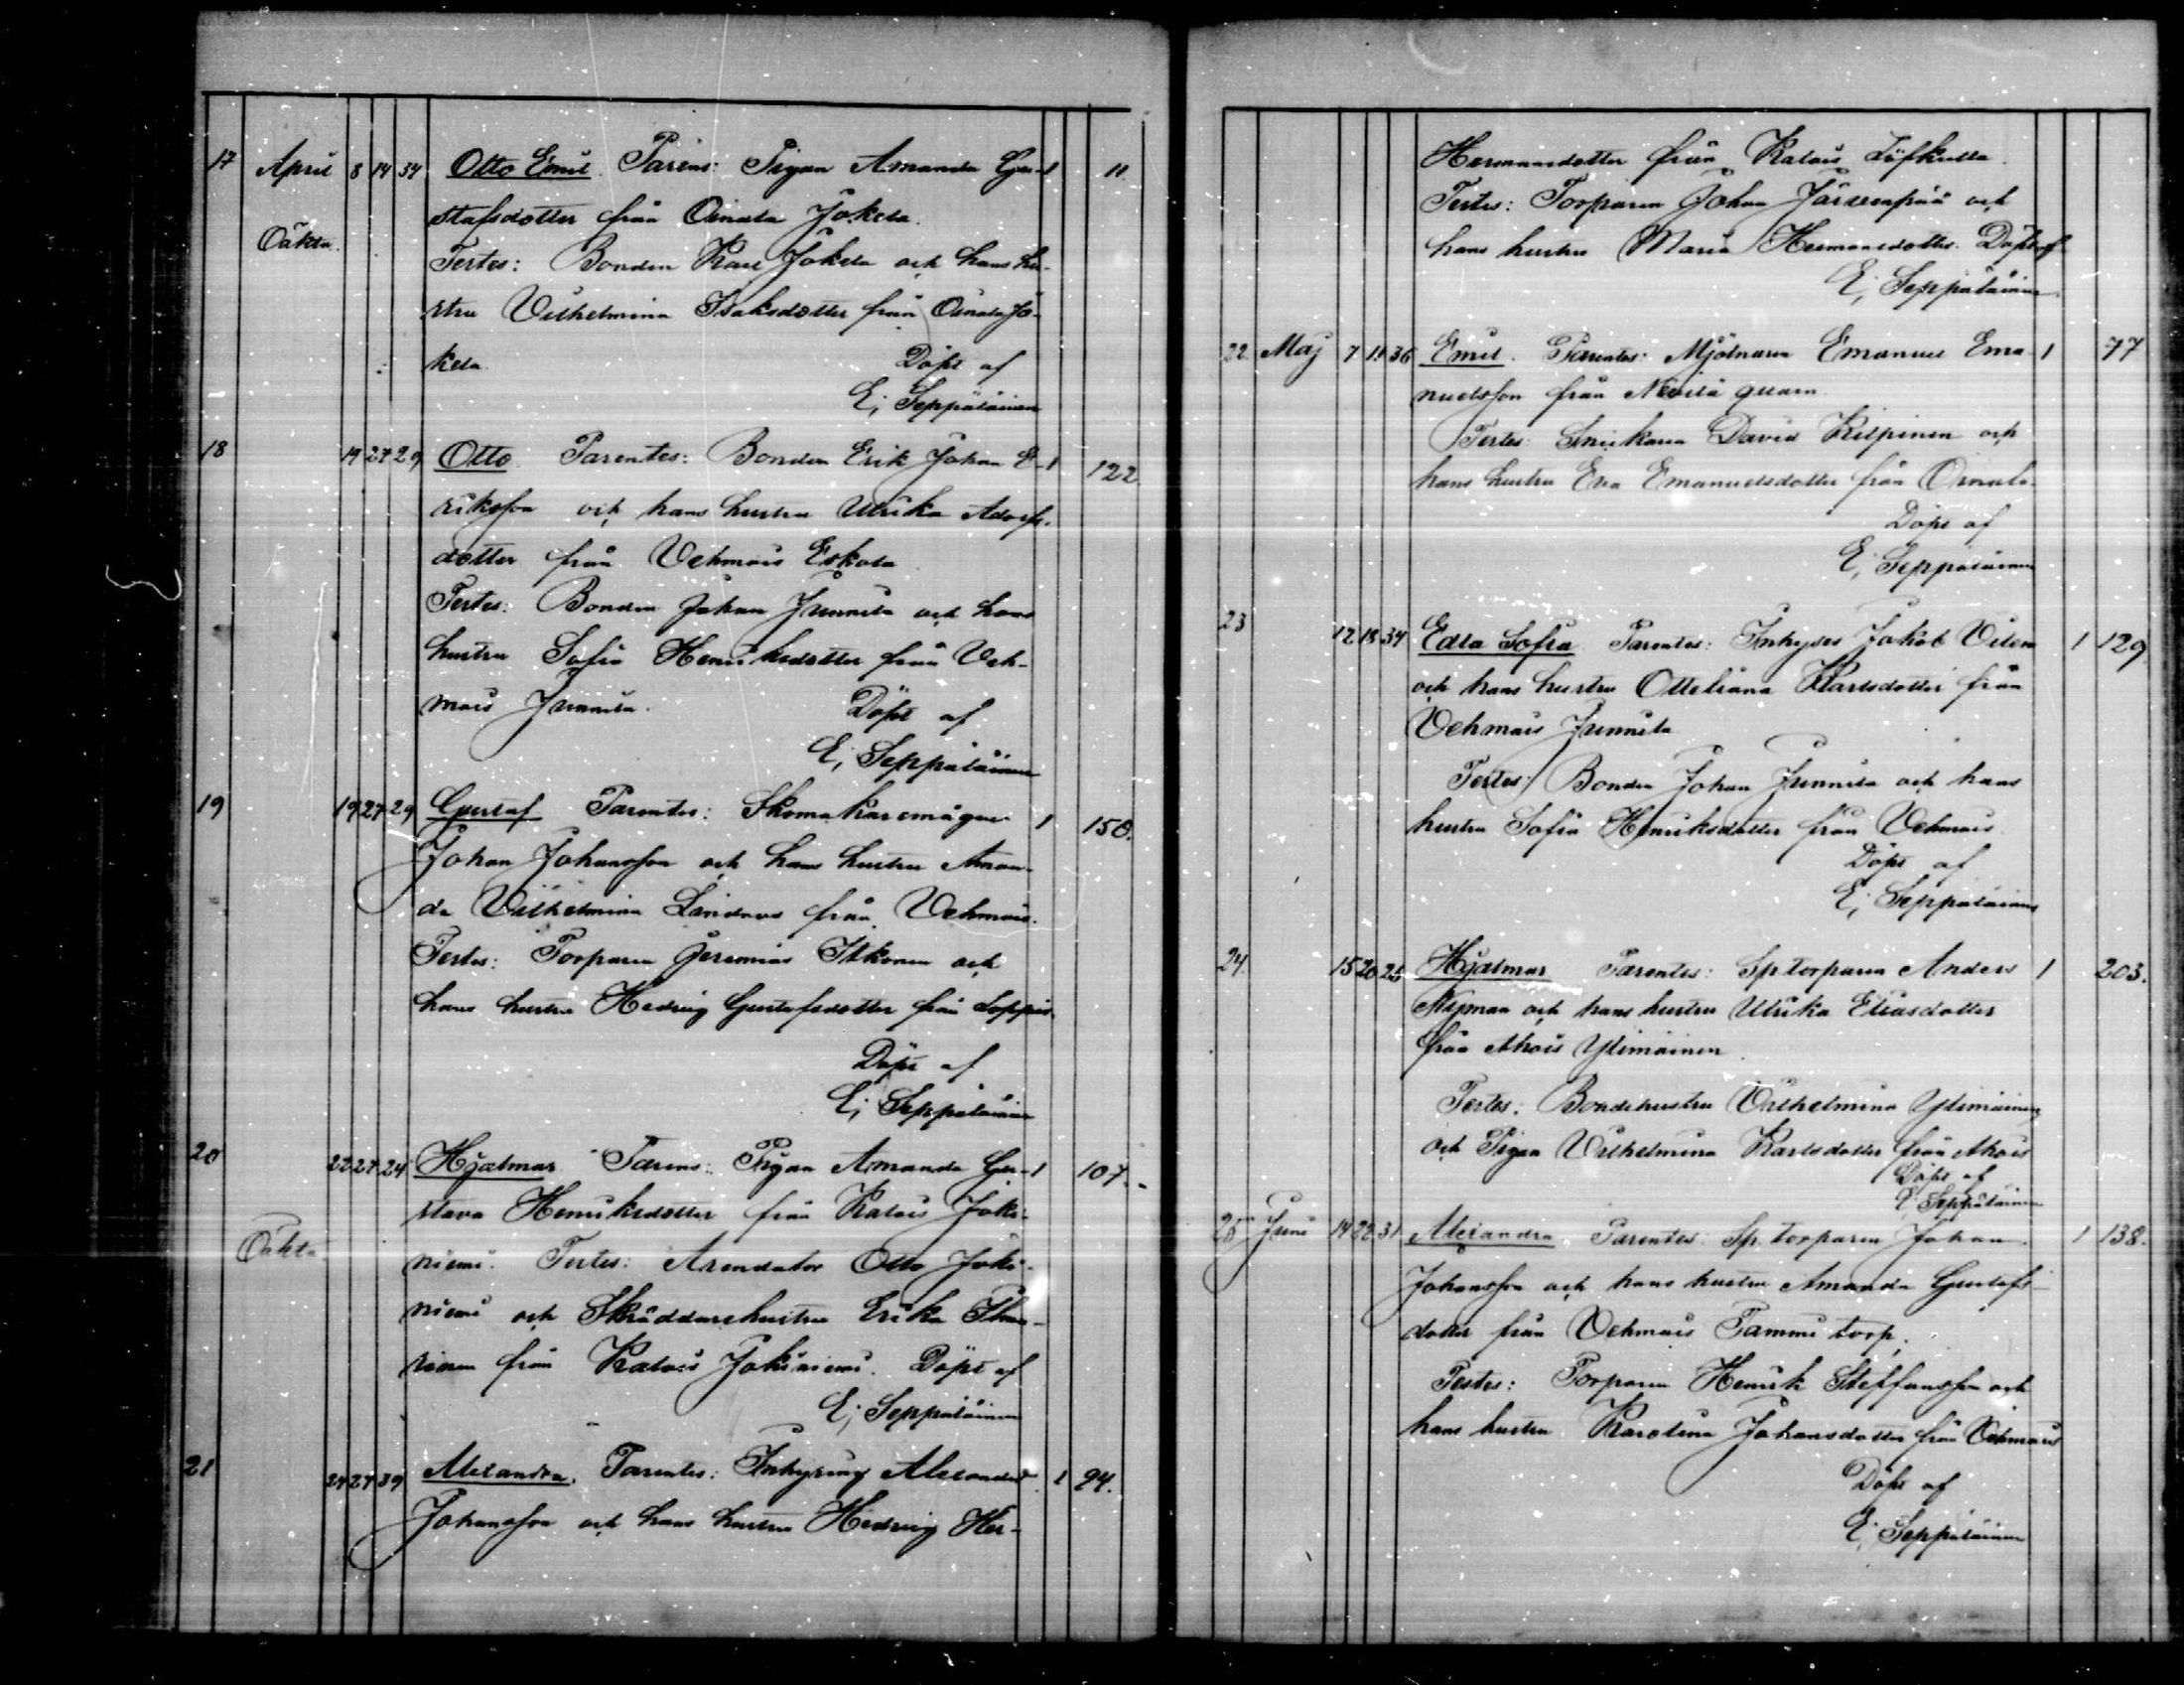 17 April 8 14 34 Otto Emil. Parens: Pigan Amanda Gu- 1 11
stafsdotter från Oinala Jokela.
Oäkta. Testes: Bonden Karl Jokela och hans hu-
stru Vilhelmina Isaksdotter från Oinala Jo-
kela. Döpt af
E, Seppäläinen
18 19 27 29 Otto Parentes: Bonden Erik Johan E- 1 122
riksson och hans hustru Ulrika Adolfs-
dotter från Vehmais Eskola
Testes: Bonden Johan Junnila och hans
hustru Sofia Henriksdotter från Veh-
mais Junnila. Döpt af
E, Seppäläinen
19 19 27 29 Gustaf Parentes: Skomakaremågen 1 150.
Johan Johansson och hans hustru Aman-
da Vilhelmina Lindroos från Vehmais.
Testes: Torparen Jeremias Itkonen och
hans hustru Hedvig Gustafsdotter från Loppis.
Döpt af
E, Seppäläinen
20 22 27 24 Hjalmar. Parens: Pigan Amanda Gu- 1 107.
stava Henriksdotter från Kalais Joki-
Oäkta niemi. Testes: Arendator Otto Joki-
niemi och Skräddarehustru Erika
från Kalais Jokiniemi. Döpt af
E, Seppäläinen
21 24 27 39 Alexandra. Parentes: Inhysing Alexander 1 94.
Johansson och hans hustru Hedvig Her-
Hermansdotter från Kalais Löfkulla.
Testes: Torparen Johan Järvenpää och
hans hustru Maria Hermansdotter. Döpt af
E, Seppäläinen
22. Maj 7 11 36 Emil. Parentes: Mjölnaren Emanuel Ema- 1 77
nuelsson från qvarn.
Testes: Snickaren David Kilpinen och
hans hustru Eva Emanuelsdotter från Oinala.
Döpt af
E, Seppäläinen
23 12 18 34 Edla Sofia Parentes: Inhyses Jakob Vilen 1 129.
och hans hustru Otteliana Karlsdotter från
Vehmais Junnila
Testes: Bonden Johan Junnila och hans
hustru Sofia Henriksdotter från Vehmais
Döpt af
E, Seppäläinen
24. 15 20 25 Hjalmar Parentes: Sp.torparen Anders 1 203.
Nyman och hans hustru Ulrika Eliasdotter
från Ahois Ylimäinen.
Testes: Bondehustru Vilhelmina Ylimäinen
och Pigan Vilhelmina Karlsdotter från Ahois
Döpt af
E. Seppäläinen
25 Juni 14 22 31 Alexandra Parentes: Sp. torparen Johan 1 138.
Johansson och hans hustru Amanda Gustafs-
dotter från Vehmais Tammi torp.
Testes: Torparen Henrik Steffansson och
hans hustru Karolina Johansdotter från Vehmais
Döpt af
E. Seppäläinen